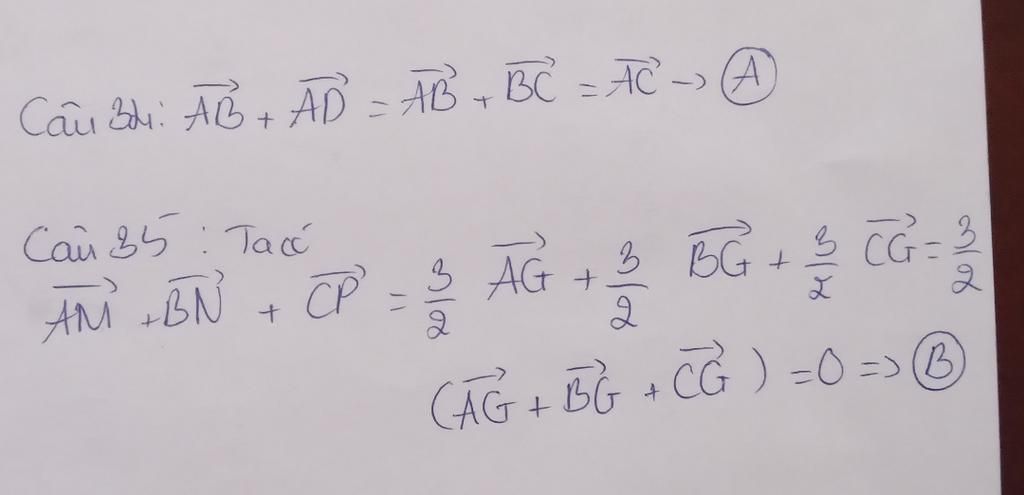 Câu 34: $\overrightarrow{AB} + \overrightarrow{AD} = \overrightarrow{AB} + \overrightarrow{BC} = \overrightarrow{AC} \to$ Ⓐ
Câu 35 : Ta có
$\overrightarrow{AM} + \overrightarrow{BN} + \overrightarrow{CP} = \frac{3}{2} \overrightarrow{AG} + \frac{3}{2} \overrightarrow{BG} + \frac{3}{2} \overrightarrow{CG} = \frac{3}{2}$
$(\overrightarrow{AG} + \overrightarrow{BG} + \overrightarrow{CG}) = 0 \Rightarrow$ Ⓑ